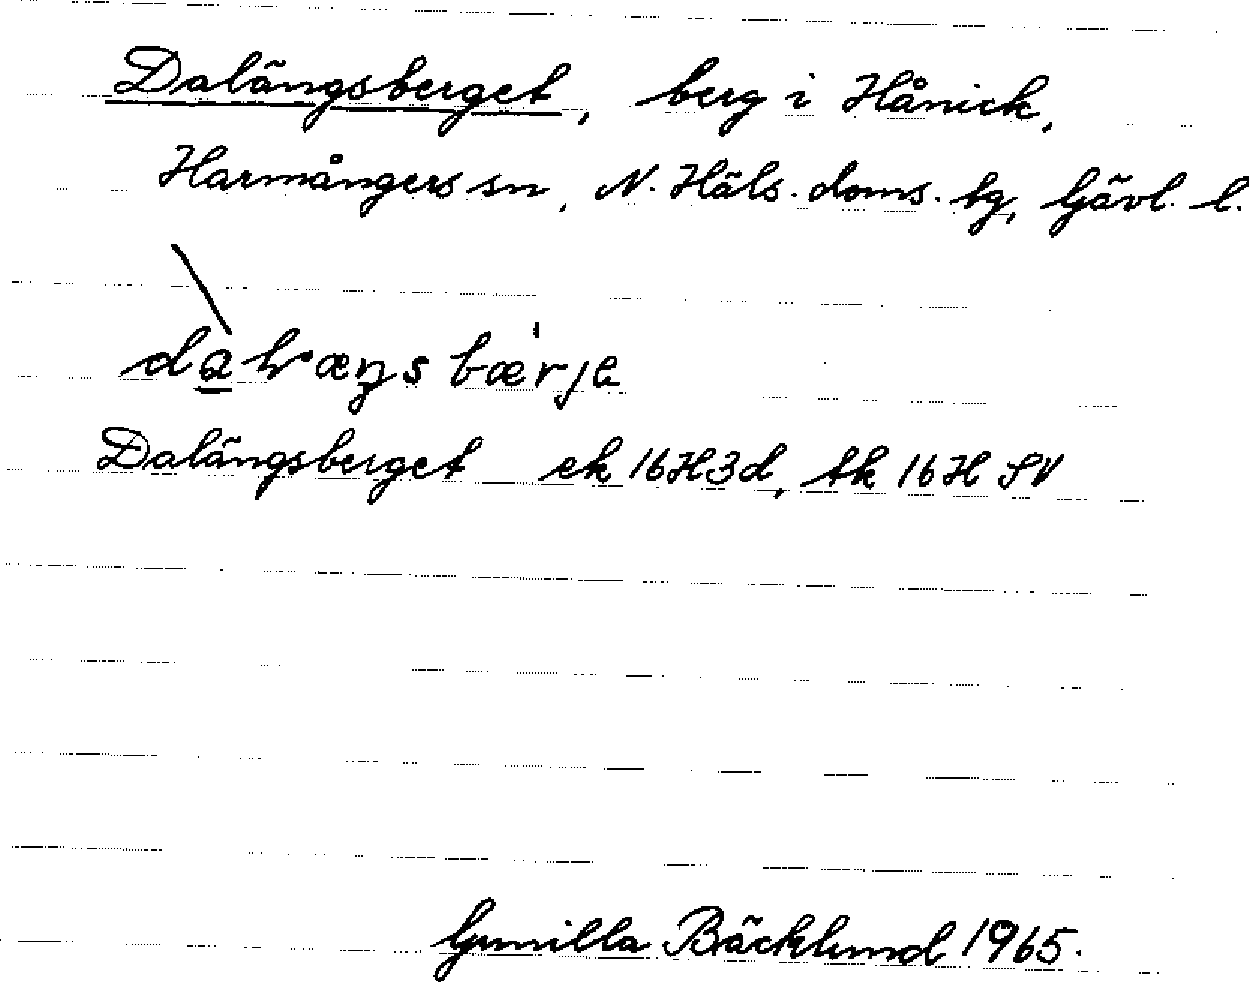 Dalängsberget, berg i Hånick,
Harmångers sn, N. Häls. doms. tg, Gävl. l.
Dalängsberget ek 16H3d, tk 16H SV
Gunilla Bäcklund 1965.